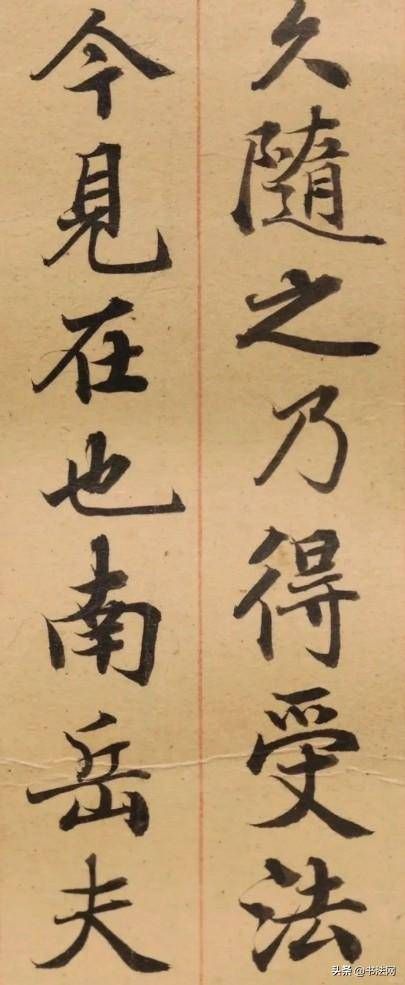 久隨之乃得受法
今見在也南岳夫
头条 @书法网